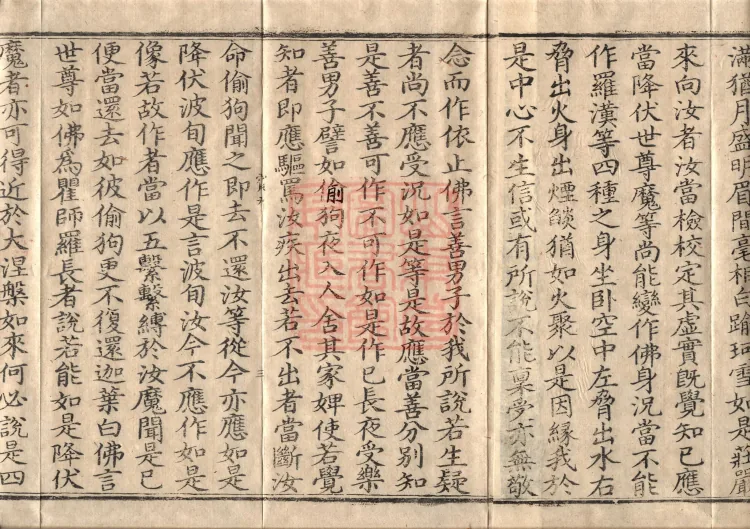 滿猶月盛明眉間毫相白踰珂雪如是莊嚴
來向汝者汝當檢校定其虛實旣覺知已應
當降伏世尊魔等尚能變作佛身況當不能
作羅漢等四種之身坐卧空中左脅出水右
脅出火身出煙燄猶如火聚以是因緣我於
是中心不生信或有所說不能稟受亦無敬
念而作依止佛言善男子於我所說若生疑
者尚不應受況如是等是故應當善分別知
是善不善可作不可作如是作已長夜受樂
善男子譬如偷狗夜入人舍其家婢使若覺
知者即應驅罵汝疾出去若不出者當斷汝
命偷狗聞之即去不還汝等從今亦應如是
降伏波旬應作是言波旬汝今不應作如是
像若故作者當以五繫繫縛於汝魔聞是已
便當還去如彼偷狗更不復還迦葉白佛言
世尊如佛為瞿師羅長者說若能如是降伏
魔者亦可得近於大涅槃如來何必說是四